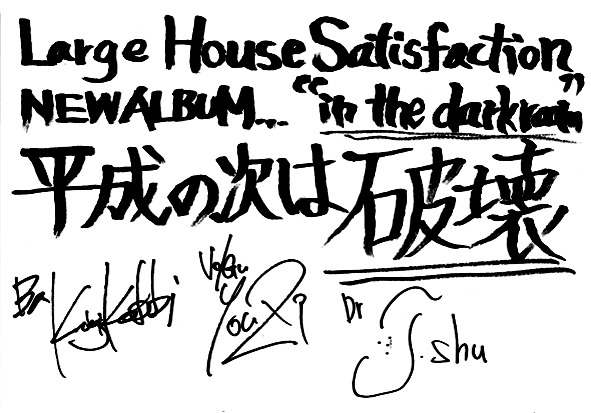 Large House Satisfaction
NEW ALBUM... "in the darkroom"
平成の次は破壊
Ba
Vo/Gu
Dr
J.shu